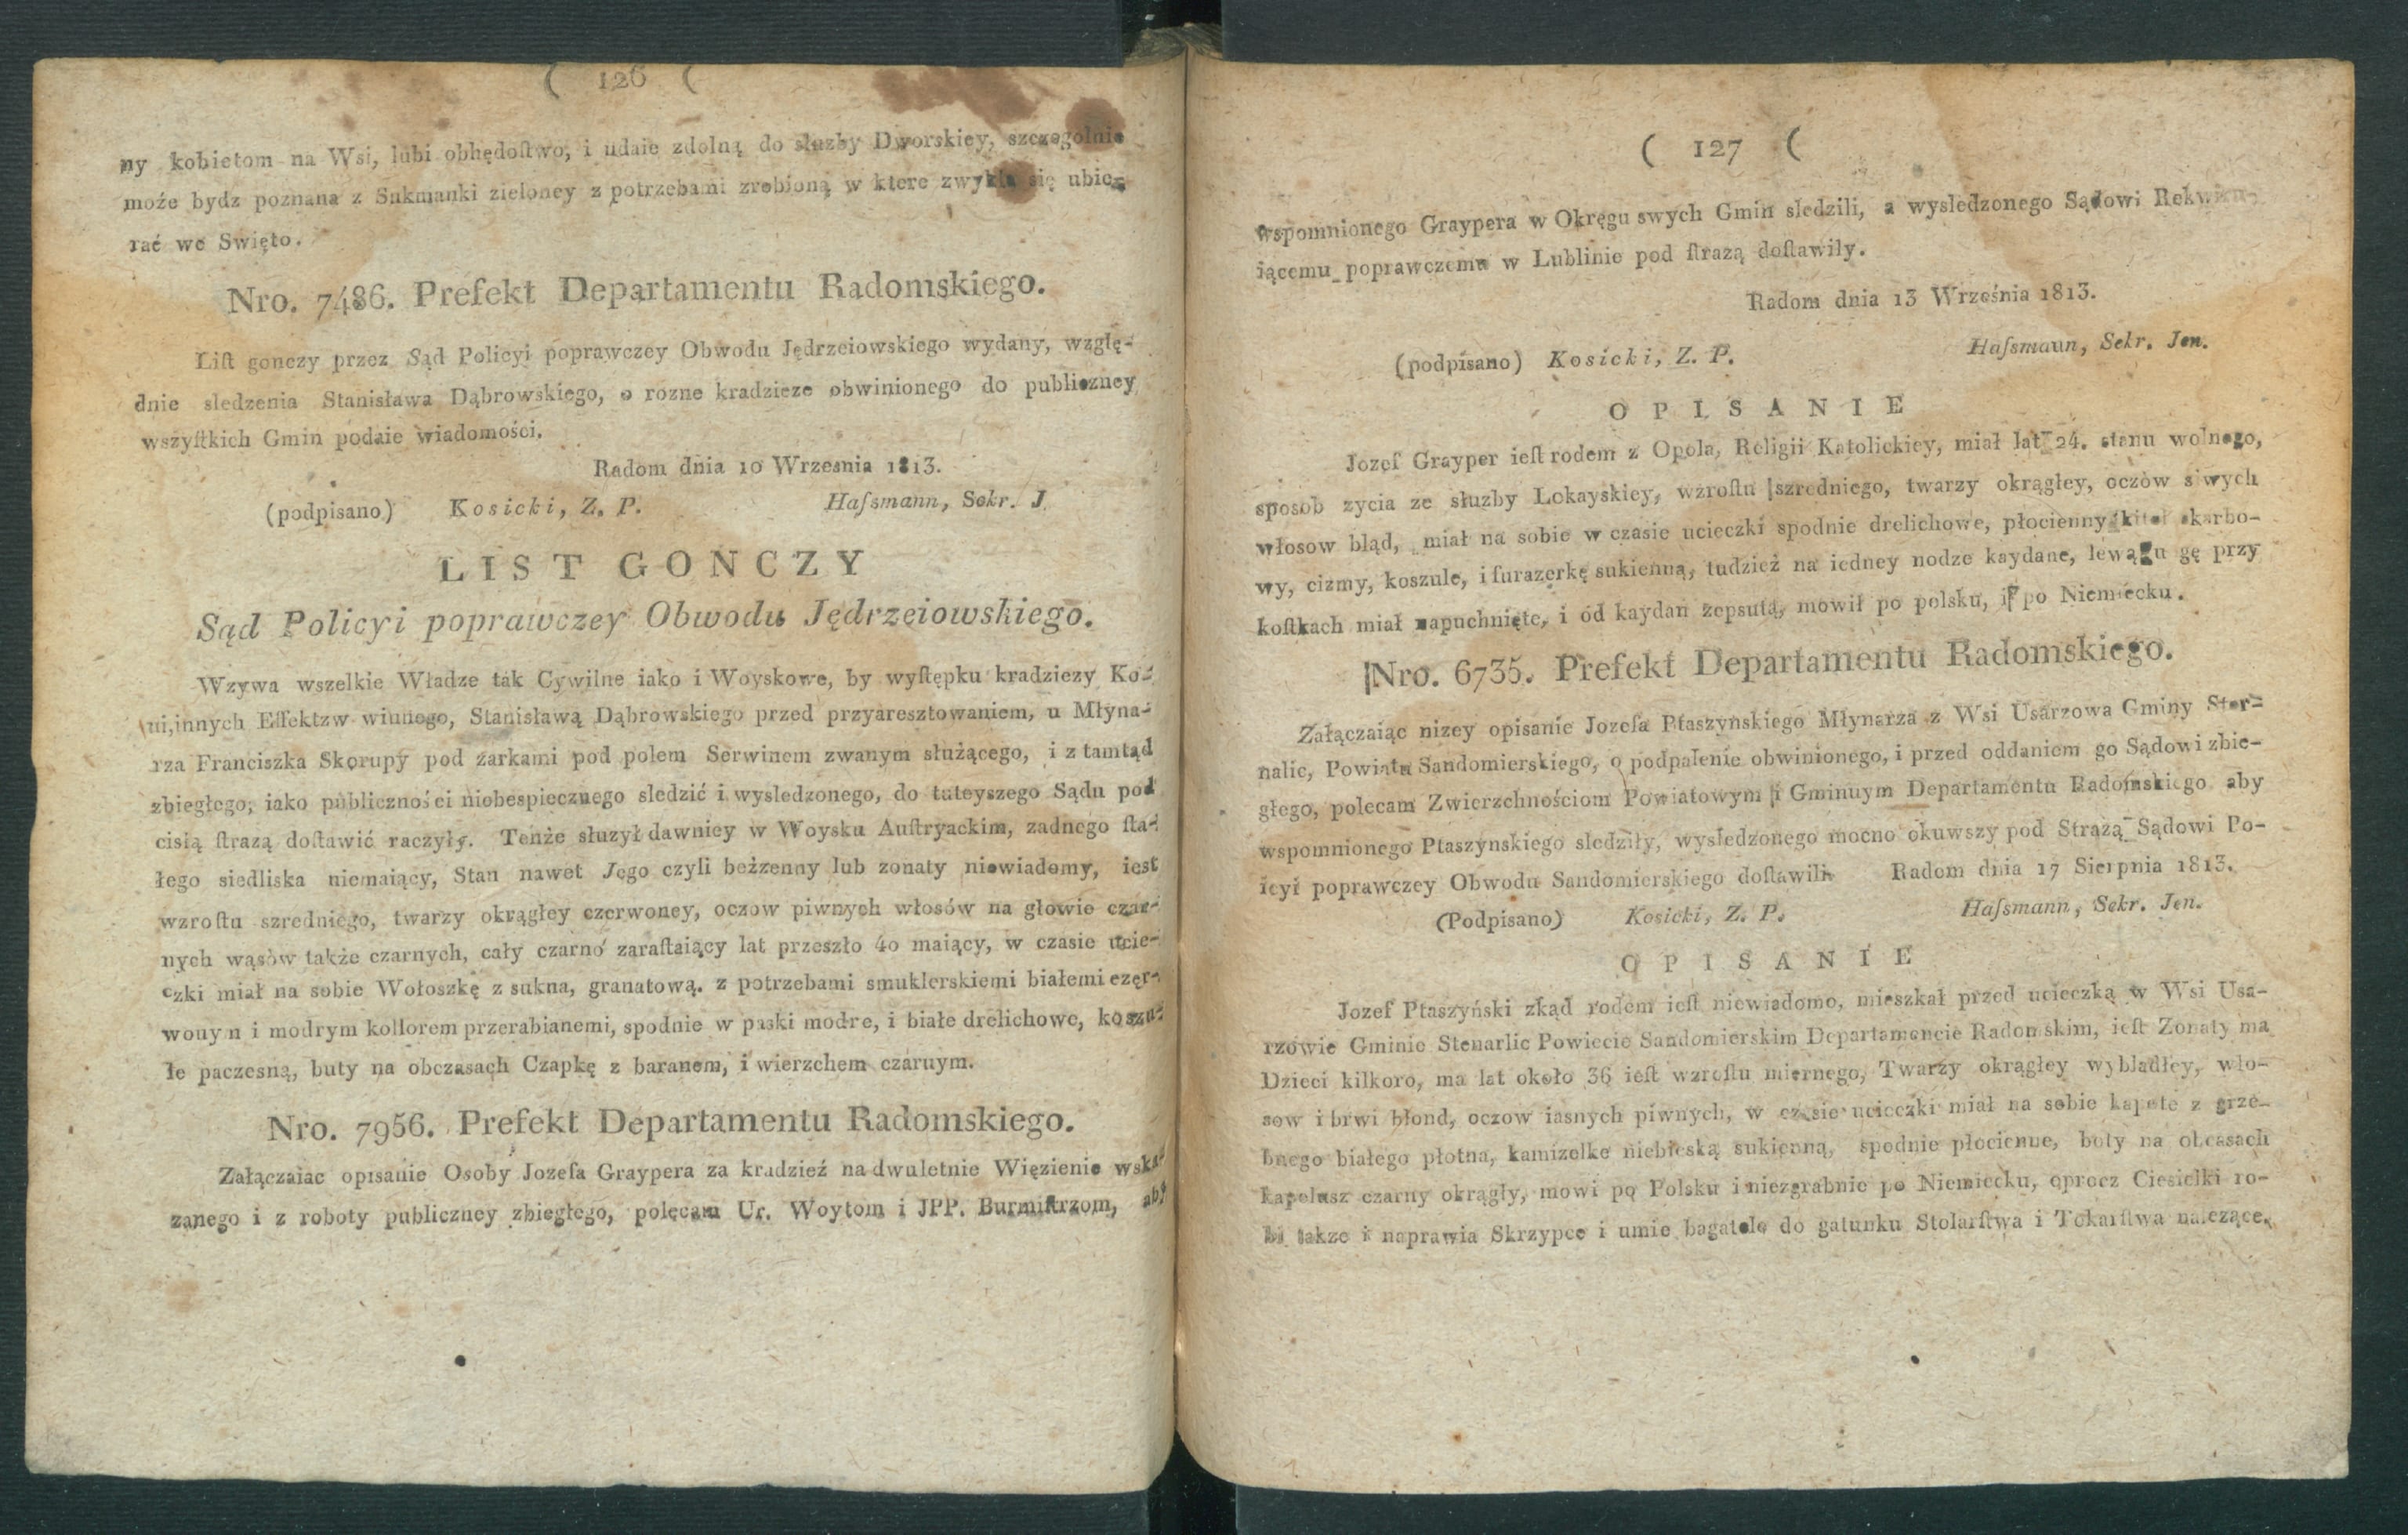 ( 126 (
ny kobietom na Wsi, lubi obhędoſtwo, i udaie zdolną do słuzby Dworskiey, szczegolnie
może bydz poznana z Sukmanki zieloney z potrzebami zrobioną w ktere zwykła się ubie-
rać we Swięto.
Nro. 7486. Prefekt Departamentu Radomskiego.
Liſt gonczy przez Sąd Policyi poprawczey Obwodu Jędrzeiowskiego wydany, wzglę-
dnie sledzenia Stanisława Dąbrowskiego, o rozne kradzieze obwinionego do publiczney
wszyſtkich Gmin podaie wiadomości.
Radom dnia 10 Wrzesnia 1813.
(podpisano) Kosicki, Z. P. Haſsmann, Sekr. J.
LIST GONCZY
Sąd Policyi poprawczey Obwodu Jędrzeiowskiego.
Wzywa wszelkie Władze tak Cywilne iako i Woyskowe, by wyſtępku kradziezy Ko-
ni,innych Effektzw winnego, Stanisławą Dąbrowskiego przed przyaresztowaniem, u Młyna-
rza Franciszka Skorupy pod zarkami pod polem Serwinem zwanym służącego, i z tamtąd
zbiegłego, iako publiczności niebespiecznego sledzić i wysledzonego, do tuteyszego Sądu pod
cisłą ſtrazą doſtawić raczyły. Tenże słuzył dawniey w Woysku Auſtryackim, zadnego ſta-
łego siedliska niemaiący, Stan nawet Jego czyli beżzenny lub zonaty niewiadomy, iest
wzroſtu szredniego, twarzy okrągłey czerwoney, oczow piwnych włosów na głowie czar-
nych wąsów także czarnych, cały czarno zaraſtaiący lat przeszło 40 maiący, w czasie ucie-
czki miał na sobie Wołoszkę z sukna, granatową. z potrzebami smuklerskiemi białemi czer-
wonyn i modrym kollorem przerabianemi, spodnie w paski modre, i białe drelichowe, koszu-
le paczesną, buty na obczasach Czapkę z baranem, i wierzchem czarnym.
Nro. 7956. Prefekt Departamentu Radomskiego.
Załączaiac opisanie Osoby Jozefa Graypera za kradzież na dwuletnie Więzienie wska-
zanego i z roboty publiczney zbiegłego, polęcam Ur. Woytom i JPP. Burmiſtrzom, aby
( 127 (
wspomnionego Graypera w Okręgu swych Gmin sledzili, a wysledzonego Sądowi
iącemu poprawczemu w Lublinie pod ſtrazą doſtawiły.
Radom dnia 13 Września 1813.
(podpisano) Kosicki, Z. P. Haſsmann, Sekr. Jen.
OPISANIE
Jozef Grayper ieſt rodem z Opola, Religii Katolickiey, miał lat 24. stanu wolnego,
sposob zycia ze słuzby Lokayskiey, wzroſtu szredniego, twarzy okrągłey, oczow siwych
włosow bląd, miał na sobie w czasie ucieczki spodnie drelichowe, płocienny kitel skarbo-
wy, cizmy, koszule, i furazerkę sukienną, tudzież na iedney nodze kaydane, lewą gę przy
koſtkach miał napuchnięte, i od kaydan zepsutą, mowił po polsku, i po Niemiecku.
Nro. 6735. Prefekt Departamentu Radomskiego.
Załączaiąc nizey opisanie Jozefa Ptaszynskiego Młynarza z Wsi Usarzowa Gminy Ster-
nalic, Powiatu Sandomierskiego, o podpalenie obwinionego, i przed oddaniem go Sądowi zbie-
głego, polecam Zwierzchnościom Powiatowym i Gminnym Departamentu Radomskiego aby
wspomnionego Ptaszynskiego sledziły, wysledzonego mocno okuwszy pod Strazą Sądowi Po-
icyi poprawczey Obwodu Sandomierskiego doſtawili Radom dnia 17 Sierpnia 1813.
(Podpisano) Kosicki, Z. P. Haſsmann, Sekr. Jen.
OPISANIE
Jozef Ptaszyński zkąd rodem ieſt niewiadomo, mieszkał przed ucieczką w Wsi Usa-
rzowie Gminie Stenarlic Powiecie Sandomierskim Departamencie Radomskim, ieſt Zonaty ma
Dzieci kilkoro, ma lat około 36 ieſt wzroſtu miernego, Twarzy okrągłey wybladłey, wło-
sow i brwi błond, oczow iasnych piwnych, w czasie ucieczki miał na sobie kapote z grze-
bnego białego płotna, kamizelke niebieską sukienną, spodnie płocienne, boty na obcasach
kapelusz czarny okrągły, mowi po Polsku i niezgrabnie po Niemiecku, oprocz Ciesielki ro-
bi takze i naprawia Skrzypce i umie bagatele do gatunku Stolarſtwa i Tokarſtwa nalezące.